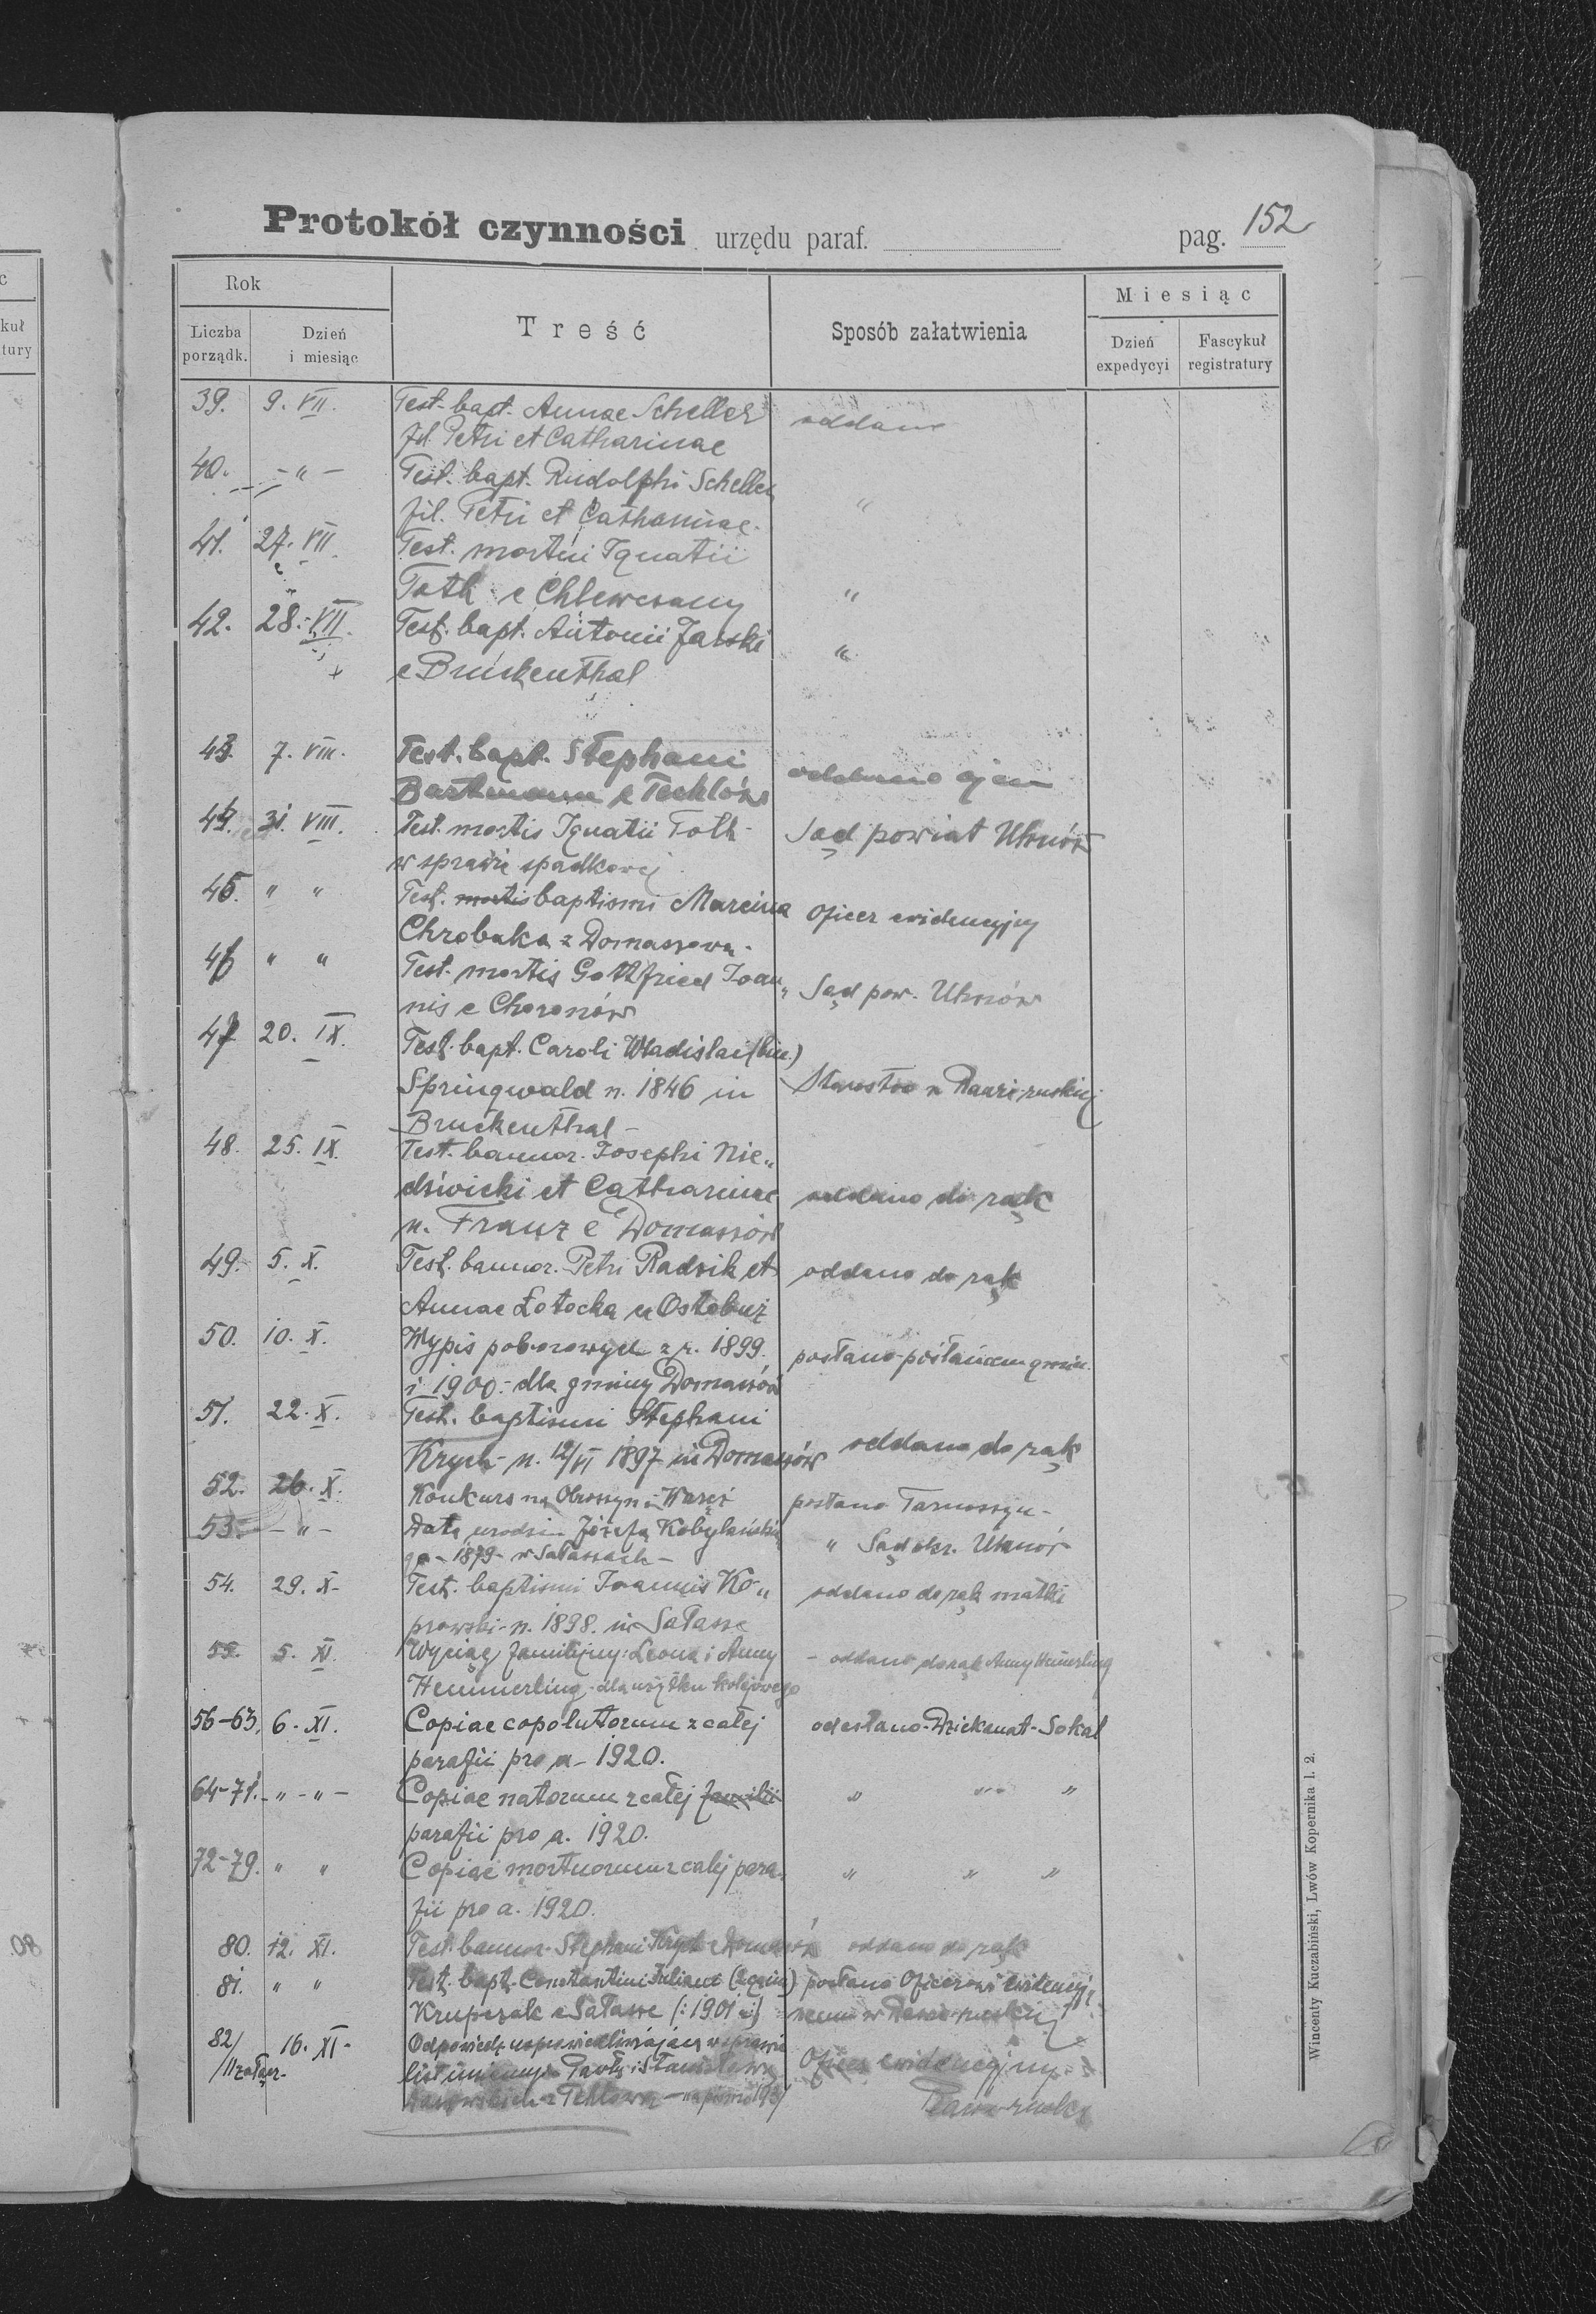 Protokół czynności urzędu paraf. pag. 152
Rok
Miesiąc
Liczba porządk.
Dzień i miesiąc
Treść
Sposób załatwienia
Dzień expedycyi
Fascykuł registratury
39. 9. VII. Test. bapt. Annae Scheller oddano
fil. Petri et Catharinae
40. - " - Test. bapt. Rudolphi Scheller "
fil. Petri et Catharinae.
41. 27. VII. Test. mortui Ignatii
Toth e Chlewczany "
42. 28. VII. Test. bapt. Antonii Jarski "
e Bruckenthal
43. 7. VIII. Test. bapt. Stephani
Bartmann e Techlów
44. 31. VIII. Test. mortis Ignatii Toth - Sąd powiat Uhnów
w sprawie spadkowej
45. " " Test. mortis baptismi Marcina Oficer ewidencyjny
Chrobaka z Domaszowa -
46 " " Test. mortis Gottfried Joan„ Sąd pow. Uhnów
nis e Choronów
47 20. IX. Test. bapt. Caroli Wladislai (bin.)
Springwald n. 1846 in Starostwo Rawa ruskiej
Bruckenthal -
48. 25. IX. Test. bannor. Josephi Nie„
dźwicki et Catharinae oddano do rąk
n. Franz e Domaszów
49. 5. X. Test. bannor. Petri Radzik et oddano do rąk
Annae Łotocka e Ostobuż
50. 10. X. Wypis poborowych z r. 1899. posłano posłańcem gmin.
i 1900. - dla gminy Domaszów
51. 22. X. Test. baptismi Stephani
Krych - n. 12/VI 1897 in Domaszów oddano do rąk
52. 26. X. Konkurs na Obroszyn i Waręż posłano Tarnoszyn -
53. - " - Data urodzin Józefa Kobylańskie " Sąd okr. Uhnów
go - 1879 - w Sałaszach -
54. 29. X - Test. baptismi Joannis Ko„ oddano do rąk matki
prowski - n. 1898. in Sałasze
55. 5. XI. Wyciąg familijny: Leona i Anny - oddano do rąk Anny Hemmerling
Hemmerling - dla użytku kolejowego
56-63. 6. XI. Copiae copulatorum z całej odesłano - Dziekanat - Sokal
parafii pro a - 1920.
64-71. - " - " - Copiae natorum z całej familii " " "
parafii pro a. 1920.
72-79. " " Copiae mortuorum z całej para- " " "
fii pro a. 1920.
80. 12. XI. Test. bannor. Stephani Krych e Domaszów oddano do rąk
81. " " Test. bapt. Constantini Juliani posłano Oficerowi ewidencyj„
Krupczak e Sałasze (: 1901 :) nemu w Rawie ruskiej
82/ 16. XI - Odpowiedź usprawiedliwiająca w sprawie
/II załącz. - Pawła i Stanisława Oficer ewidencyjny
z Techlowa -
Rawa ruska
Wincenty Kuczabiński, Lwów Kopernika l. 2.